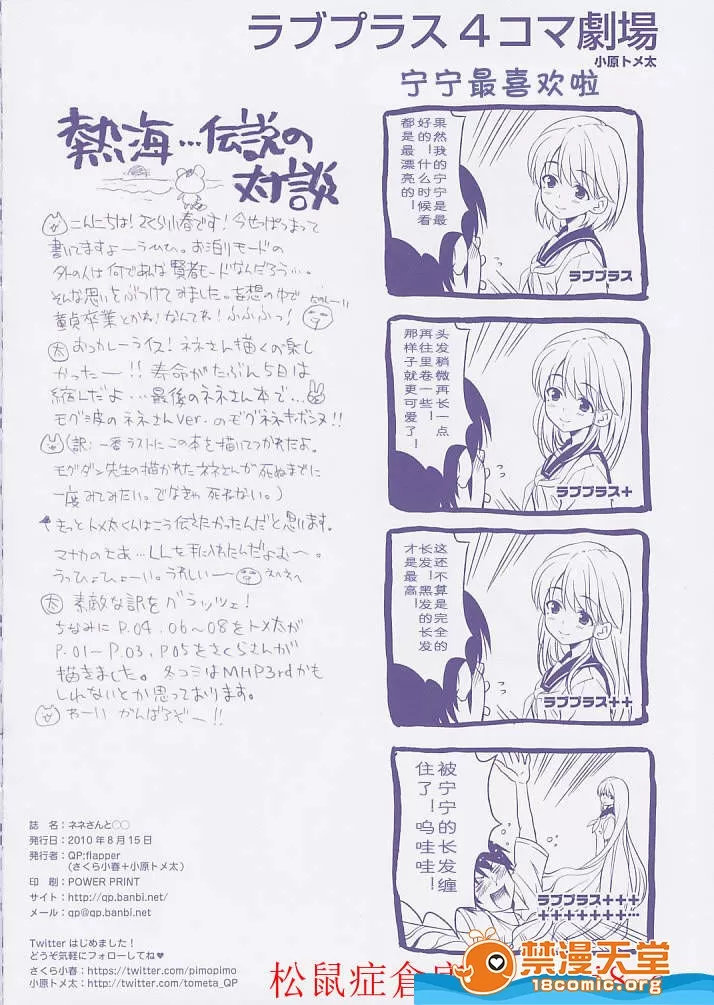 ラブプラス4コマ劇場
小原トメ太
宁宁最喜欢啦
果然我的宁宁是最
好的!什么时候看
都是最漂亮的!
ラブプラス
头发稍微再长一点
再往里卷一些!
那样子就更可爱了!
ラブプラス+
这还不算是完全的
长发!黑发的长发
才是最高!
ラブプラス++
被宁宁的长发缠
住了!呜哇哇!
ラブプラス+++
+++++++…
熱海…伝説の
対談
こんにちは!さくら小春です!今せっぱつまって
書いてますよーうひひ。お泊りモードの
外の人は何であんな賢者モードなんだろう…。
そんな思いをぶつけてみました。妄想の中で
童貞卒業とかね!なんてね!ふふふっ!
太 おっカレーライス!ネネさん描くの楽し
かったー!!寿命がたぶん5日は
縮んだよ…最後のネネさん本で…
モグ波のネネさんver.のモグネネキボンヌ!!
(訳:一番ラストにこの本を描いてつかれたよ。
モグダン先生の描かれたネネさんが死ぬまでに
一度みてみたい。でなきゃ死ねない。)
きっとトメ太くんはこう伝えたかったんだと思います。
マナカのとあ…LLを手に入れたんだよむ〜。
うっひょひょーい。うれしいー
太 素敵な訳をグラッツェ!
ちなみにP.04、06〜08をトメ太が
P.01〜P.03、P05をさくらさんが
描きました。冬コミはMHP3rdかも
しれないとか思っております。
わーい がんばるぞー!!
誌 名:ネネさんと○○
発行日:2010年8月15日
発行者:QP:flapper
(さくら小春+小原トメ太)
印 刷:POWER PRINT
サイト:http://qp.banbi.net/
メール:qp@qp.banbi.net
Twitter はじめました!
どうぞ気軽にフォローしてね♥
さくら小春:https://twitter.com/pimopimo
小原トメ太:https://twitter.com/tometa_QP
松鼠症倉
禁漫天堂
18comic.org